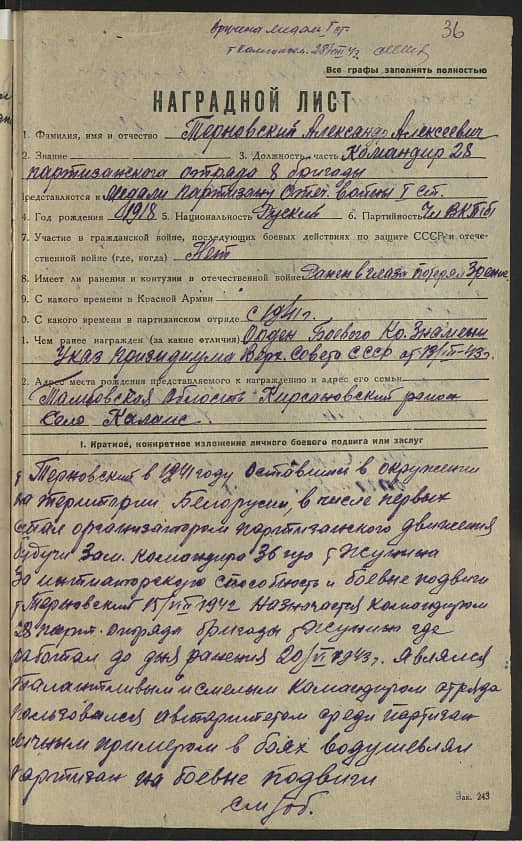 36
вручена медаль I ст.
Все графы заполнять полностью
НАГРАДНОЙ ЛИСТ
1. Фамилия, имя и отчество Терновский Александр Алексеевич
2. Звание 3. Должность, часть Командир 28
партизанского отряда 8 бригады
редставляется к медали партизану Отеч. войны I ст.
4. Год рождения 1918 5. Национальность Руский 6. Партийность Чл ВКПб
7. Участие в гражданской войне, последующих боевых действиях по защите СССР и отече-
ственной войне (где, когда) Нет
8. Имеет ли ранения и контузии в отечественной войне Ранен в глаза потерял Зрение
9. С какого времени в Красной Армии
0. С какого времени в партизанском отряде с 1941 г.
1. Чем ранее награжден (за какие отличия) Орден Боевого Кр. Знамени
Указ Президиума Верх. Совета СССР от
2. Адрес места рождения представляемого к награждению и адрес его семьи
область Кирсановский район
Село Калаис
I. Краткое, конкретное изложение личного боевого подвига или заслуг
т Терновский в 1941 году оставшись в окружении
на территории Белорусии, в числе первых
стал организатором партизанского движения
будучи Зам. Командира т Жунина
За способность и боевые подвиги
т Терновский 1942 назначается командиром
28 парт. отряда бригады т Жунина где
работал до дня ранения 1943 г. являлся
талантливым и смелым командиром отряда
пользовался автаритетом среди партизан
личным примером в боях водушевлял
партизан на боевые подвиги
см/об.
Зак. 243